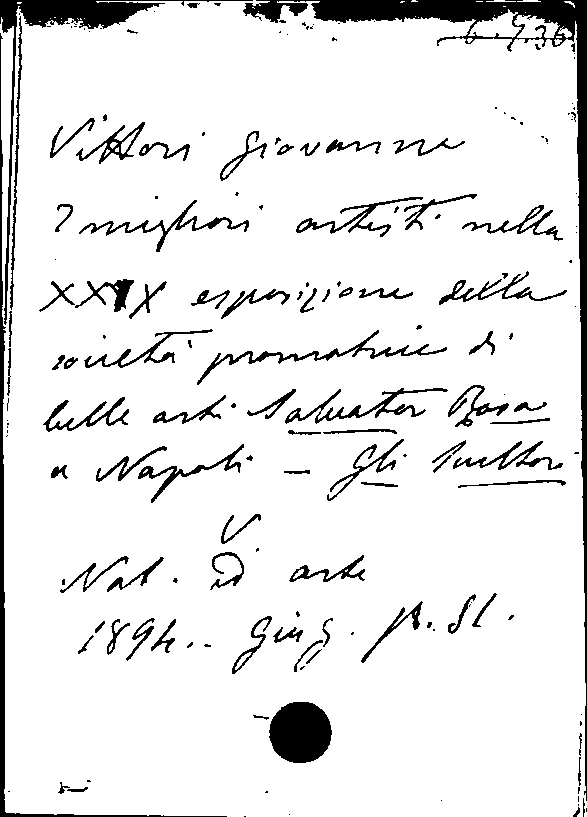 6.9.36
Vittori Giovanni
I migliori artisti nella
XXIX esposizione della
società promotrice di
belle arti Salvator Rosa
a Napoli – Gli scultori
V
Nat. ed arte
1894.. Giug. p. 51.